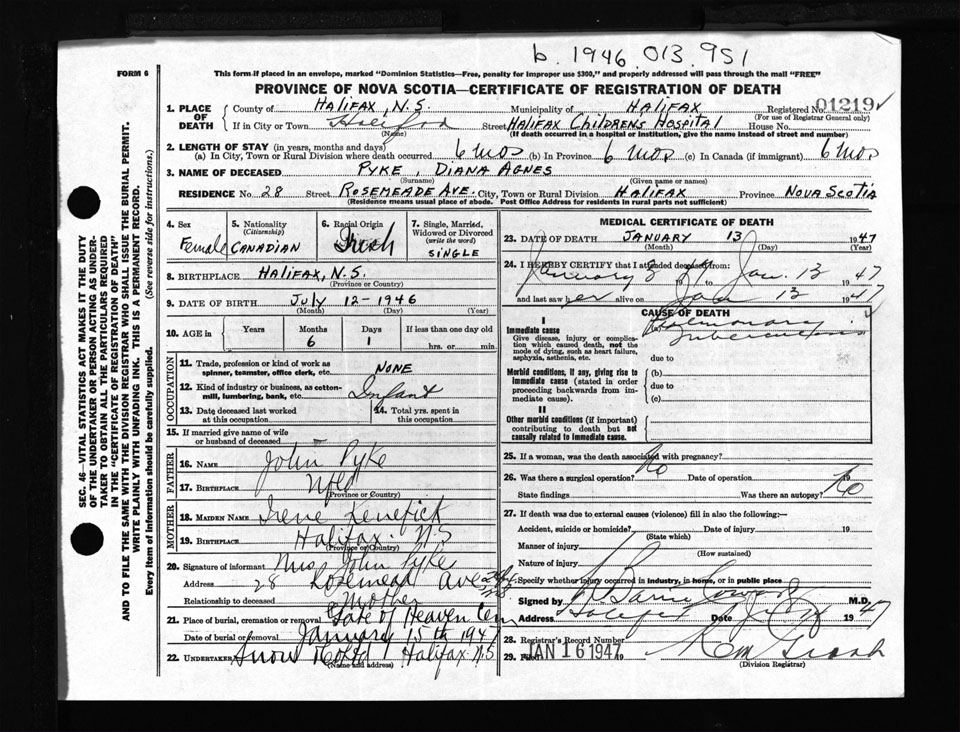 b. 1946.013.951
FORM 6
This form if placed in an envelope, marked "Dominion Statistics—Free, penalty for improper use $300," and properly addressed will pass through the mail "FREE"
PROVINCE OF NOVA SCOTIA—CERTIFICATE OF REGISTRATION OF DEATH
1. PLACE OF DEATH County of HALIFAX, N.S. Municipality of HALIFAX Registered No. 01219
(For use of Registrar General only)
If in City or Town Halifax Street HALIFAX CHILDRENS HOSPITAL House No.
(Name) (If death occurred in a hospital or institution, give the name instead of street and number)
2. LENGTH OF STAY (in years, months and days)
(a) In City, Town or Rural Division where death occurred 6 mos (b) In Province 6 mos (c) In Canada (if immigrant) 6 mos
3. NAME OF DECEASED PYKE, DIANA AGNES
(Surname) (Given name or names)
RESIDENCE No. 28 Street ROSEMEADE AVE. City, Town or Rural Division HALIFAX Province NOVA SCOTIA
(Residence means usual place of abode. Post Office Address for residents in rural parts not sufficient)
4. Sex Female
5. Nationality (Citizenship) CANADIAN
6. Racial Origin Irish
7. Single, Married, Widowed or Divorced (write the word) SINGLE
8. BIRTHPLACE HALIFAX, N.S.
9. DATE OF BIRTH July 12-1946
(Month) (Day) (Year)
10. AGE in Years Months 6 Days 1 If less than one day old hrs. or min.
OCCUPATION
11. Trade, profession or kind of work as spinner, teamster, office clerk, etc. NONE
12. Kind of industry or business, as cotton-mill, lumbering, bank, etc. Infant
13. Date deceased last worked at this occupation
14. Total yrs. spent in this occupation
15. If married give name of wife or husband of deceased
FATHER
16. NAME John Pyke
17. BIRTHPLACE Nfld
(Province or Country)
MOTHER
18. MAIDEN NAME Irene Kenefick
19. BIRTHPLACE Halifax N.S
(Province or Country)
20. Signature of informant Mrs John Pyke
Address 28 Rosemead Ave
Relationship to deceased Mother
21. Place of burial, cremation or removal Gate of Heaven Cem
Date of burial or removal January 15th 1947
22. UNDERTAKER Snow Halifax N.S
(Name and address)
MEDICAL CERTIFICATE OF DEATH
23. DATE OF DEATH JANUARY 13 1947
(Month) (Day) (Year)
24. I HEREBY CERTIFY that I attended deceased from:
January 8 19 to Jan. 13 1947
and last saw her alive on Jan 13 1947
CAUSE OF DEATH
I
Immediate cause
Give disease, injury or complication which caused death, not the mode of dying, such as heart failure, asphyxia, asthenia, etc.
(a) Pulmonary Tuberculosis
due to
Morbid conditions, if any, giving rise to immediate cause (stated in order proceeding backwards from immediate cause).
(b)
due to
(c)
II
Other morbid conditions (if important) contributing to death but not causally related to immediate cause.
25. If a woman, was the death associated with pregnancy?
26. Was there a surgical operation? No Date of operation 19
State findings Was there an autopsy? No
27. If death was due to external causes (violence) fill in also the following:—
Accident, suicide or homicide? Date of injury 19
(State which)
Manner of injury
(How sustained)
Nature of injury
Specify whether injury occurred in industry, in home, or in public place
Signed by M.D.
Address Halifax Date 1947
28. Registrar's Record Number
29. Filed JAN 16 1947 19
(Division Registrar)
SEC. 46—VITAL STATISTICS ACT MAKES IT THE DUTY OF THE UNDERTAKER OR PERSON ACTING AS UNDERTAKER TO OBTAIN ALL THE PARTICULARS REQUIRED IN THE "CERTIFICATE OF REGISTRATION OF DEATH" AND TO FILE THE SAME WITH THE DIVISION REGISTRAR WHO SHALL ISSUE THE BURIAL PERMIT.
WRITE PLAINLY WITH UNFADING INK. THIS IS A PERMANENT RECORD.
Every item of information should be carefully supplied. (See reverse side for instructions.)